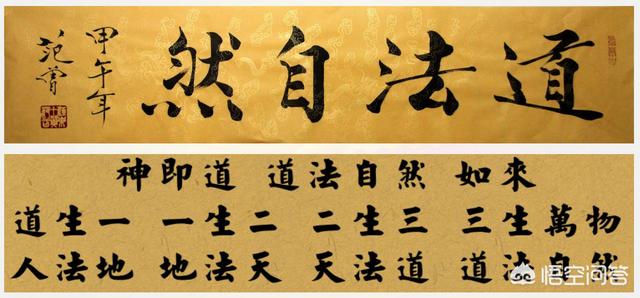 道法自然
甲午年
范曾
神即道 道法自然 如來
道生一 一生二 二生三 三生萬物
人法地 地法天 天法道 道法自然
悟空问答